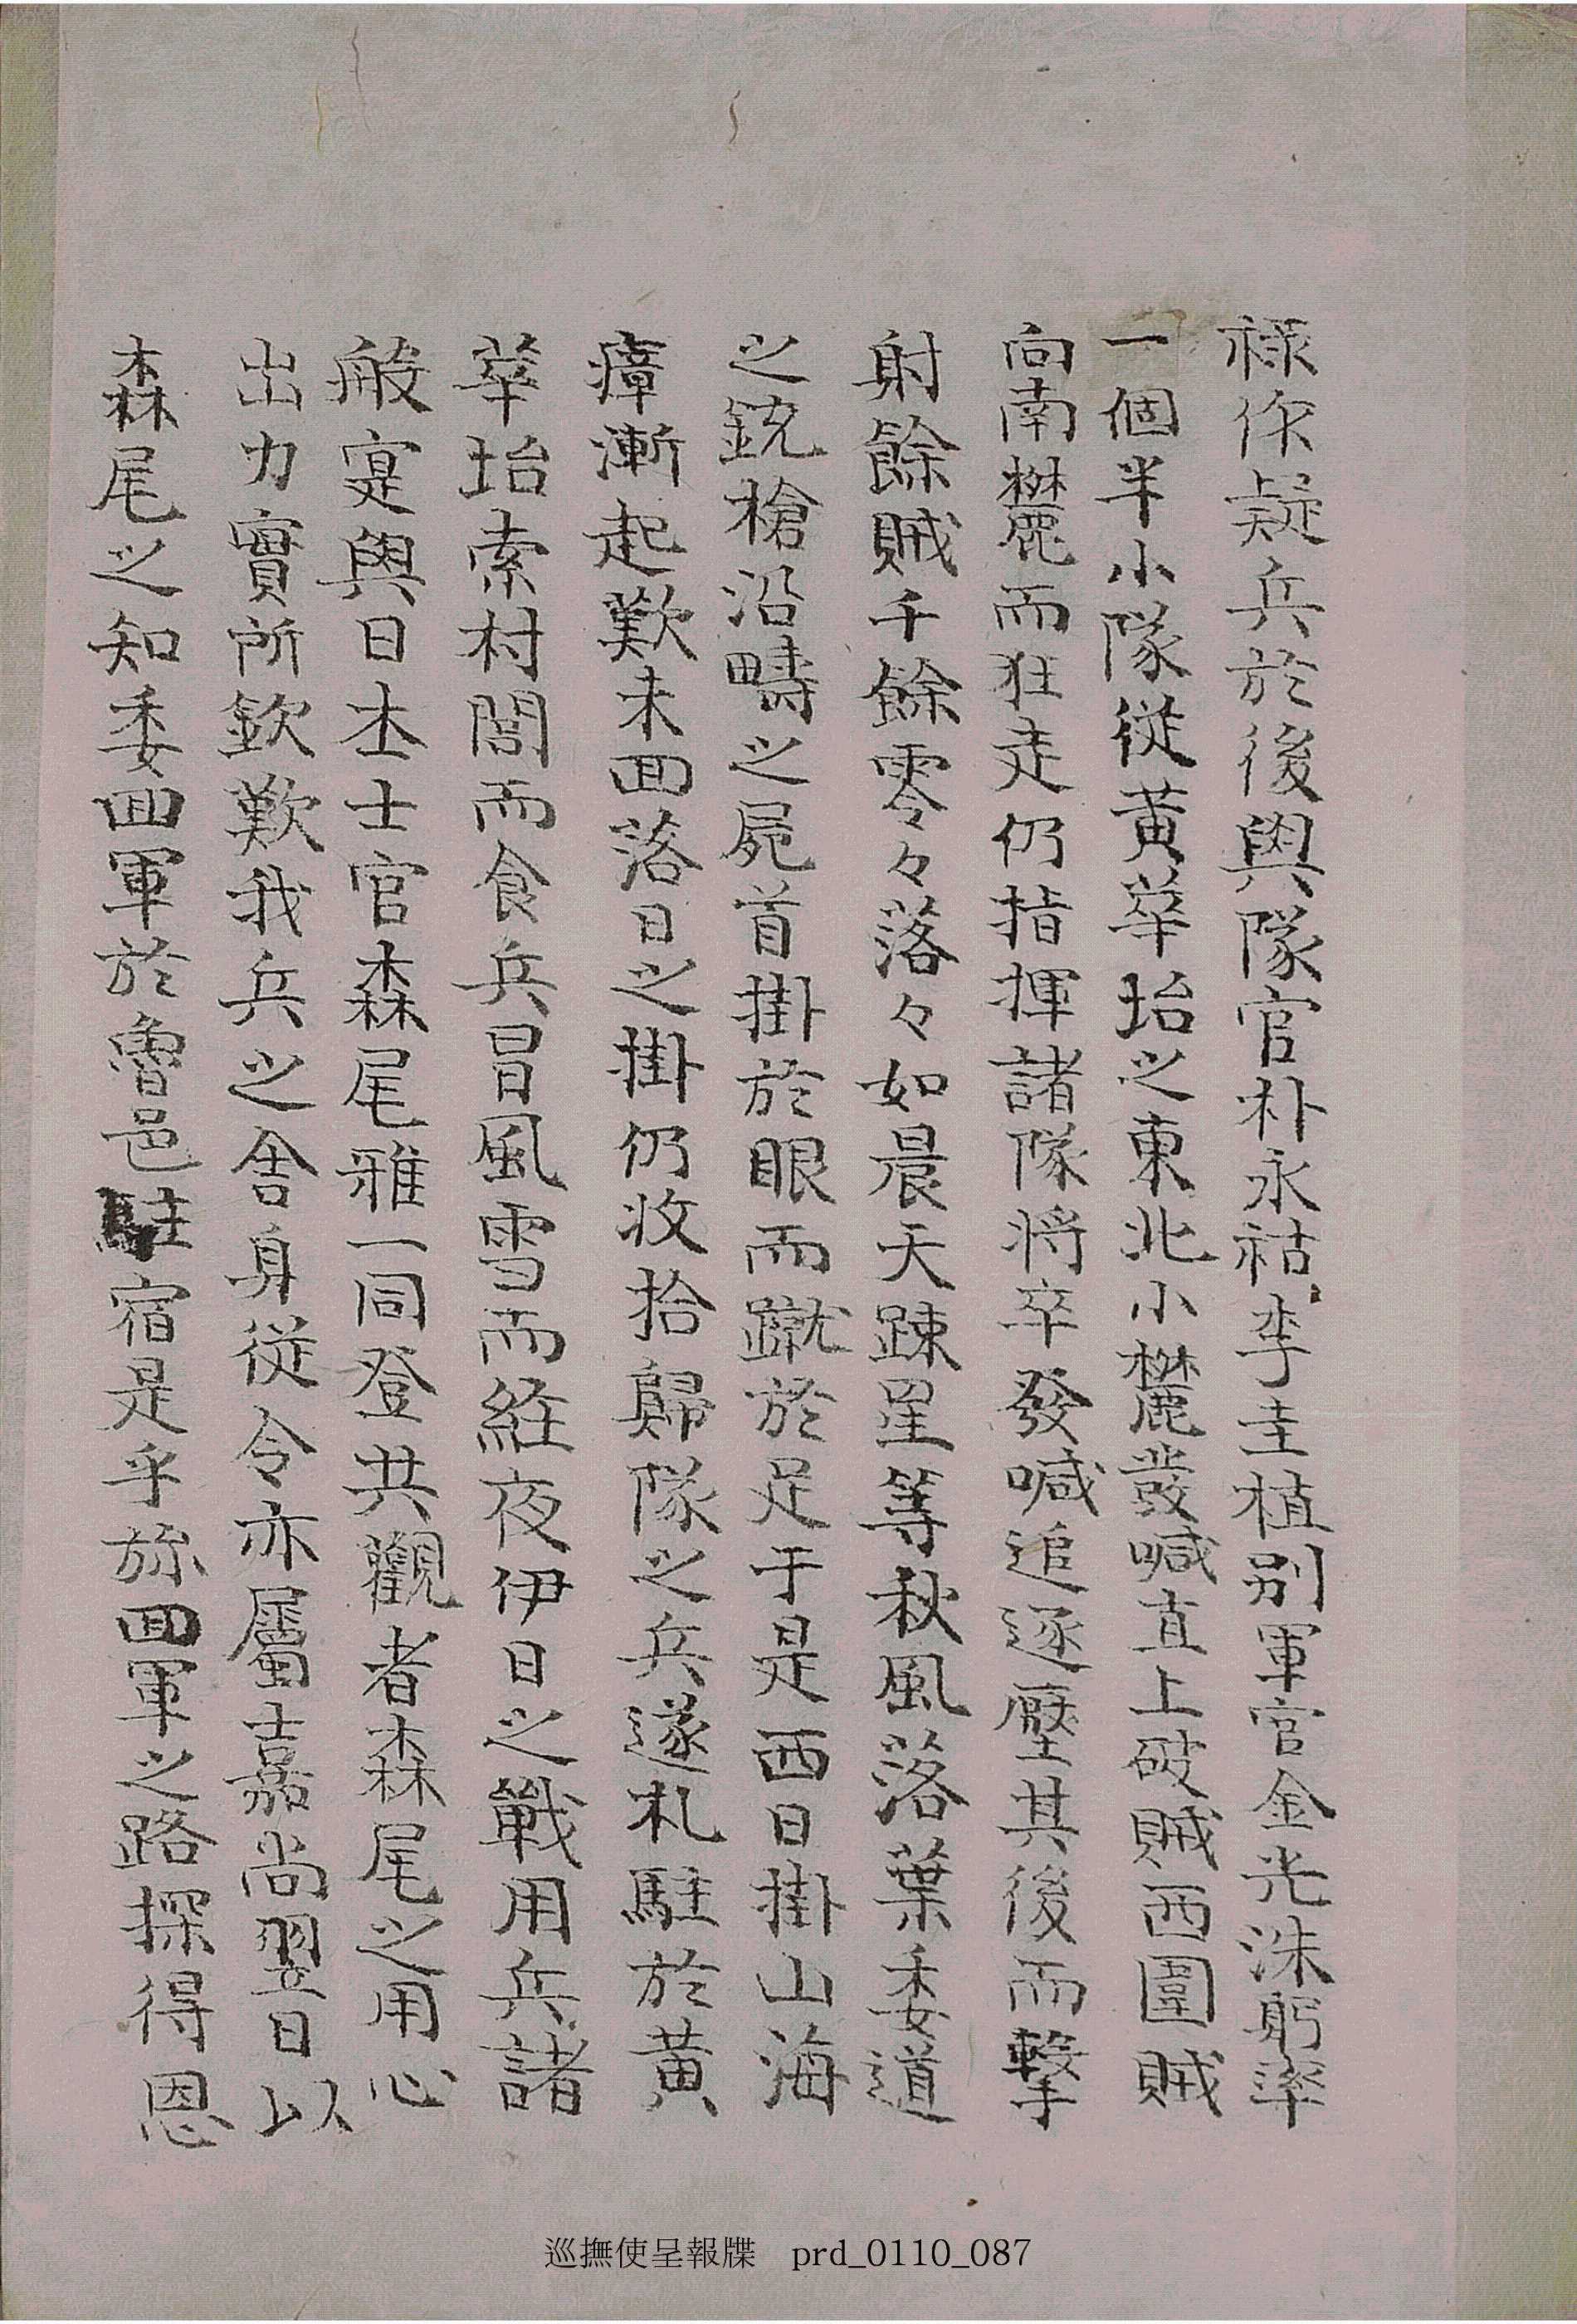 祿作疑兵於後與隊官朴永祜李圭植別軍官金光洙躬率
一個半小隊從黃華坮之東北小麓發喊直上破賊西圍賊
向南麓而狂走仍指揮諸隊將卒發喊追逐壓其後而擊
射餘賊千餘零々落々如晨天踈星等秋風落葉委道
之銃槍沿疇之屍首掛於眼而蹴於足于是西日掛山海
瘴漸起歎未回落日之掛仍收拾歸隊之兵遂札駐於黃
華坮索村閭而食兵冒風雪而經夜伊日之戰用兵諸
般寔與日本士官森尾雅一同登共觀者森尾之用心
出力實所欽歎我兵之舍身從令亦屬嘉尚翌日以
森尾之知委回軍於魯邑駐宿是乎旀回軍之路探得恩
巡撫使呈報牒 prd_0110_087